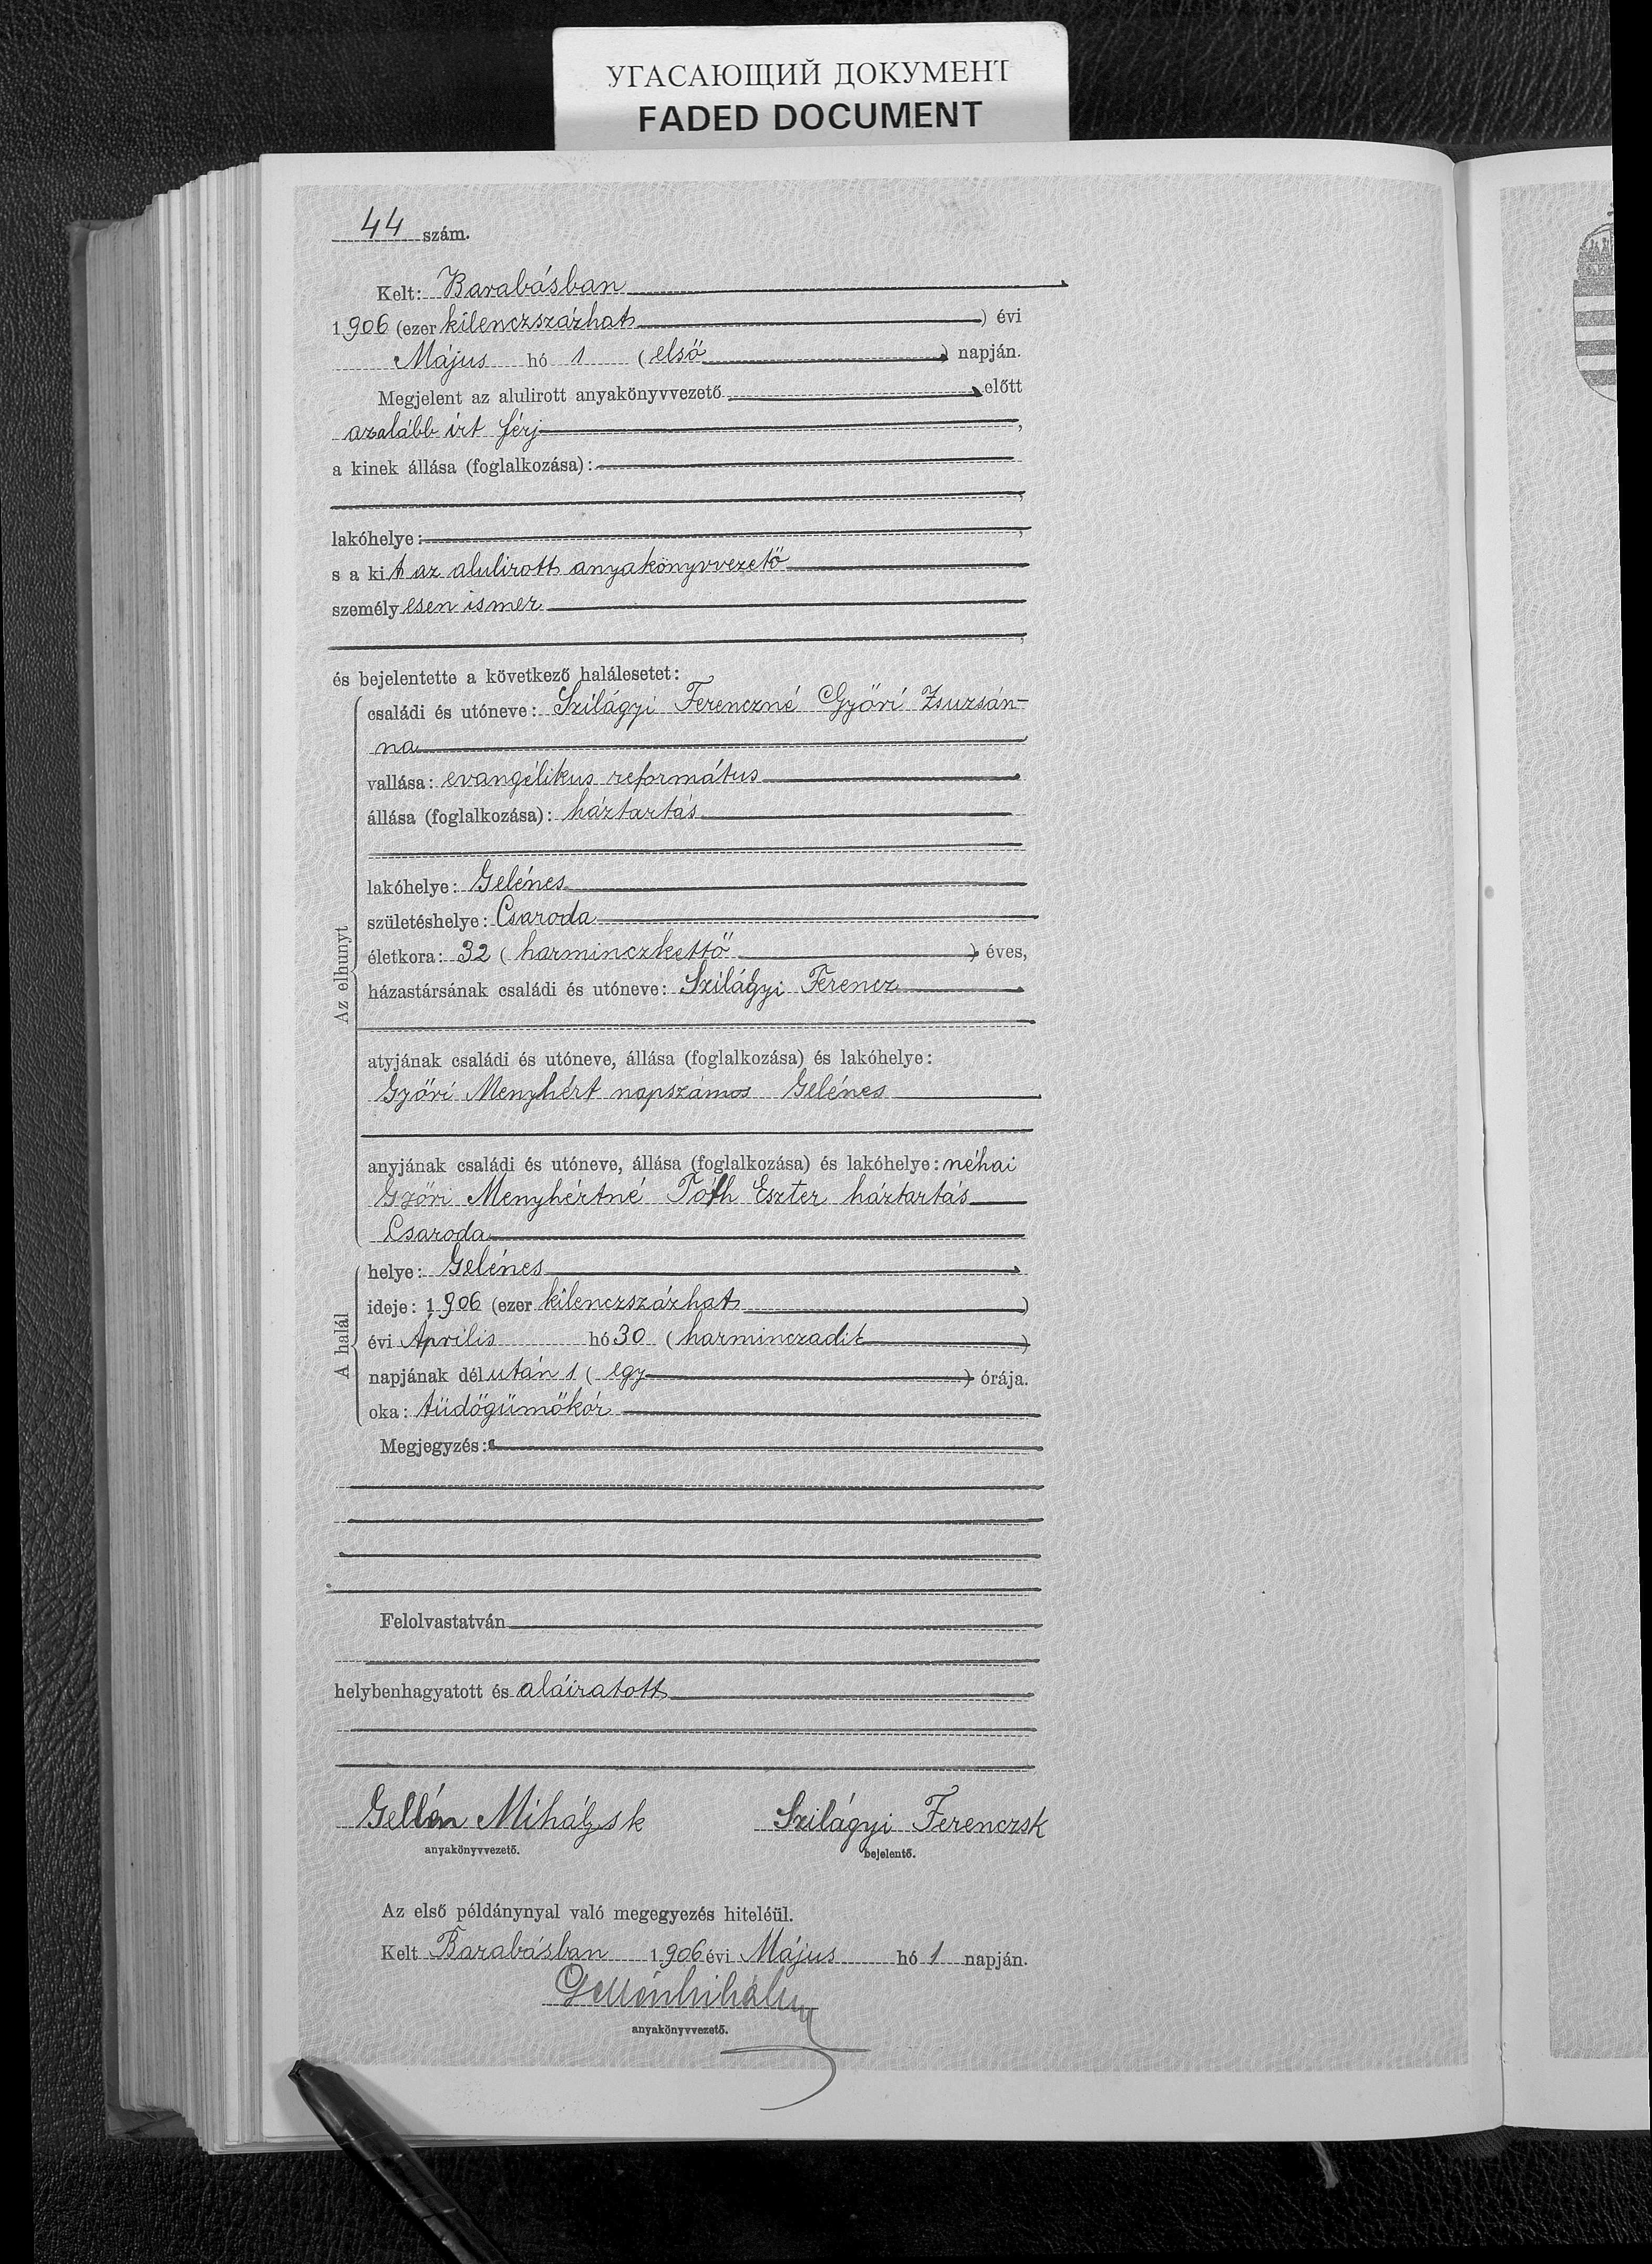 УГАСАЮЩИЙ ДОКУМЕНТ
FADED DOCUMENT
44 szám.
Kelt: Barabásban
1906 (ezer kilenczszázhat) évi
Május hó 1 (első) napján.
Megjelent az alulirott anyakönyvvezető előtt
azalább írt férj,
a kinek állása (foglalkozása):
lakóhelye:
s a kit az alulirott anyakönyvvezető
személyesen ismer
és bejelentette a következő halálesetet:
Az elhunyt
családi és utóneve: Szilágyi Ferenczné Győri Zsuzsán-
na
vallása: evangélikus református
állása (foglalkozása): háztartás
lakóhelye: Gelénes
születéshelye: Csaroda
életkora: 32 (harminczkettő) éves,
házastársának családi és utóneve: Szilágyi Ferencz
atyjának családi és utóneve, állása (foglalkozása) és lakóhelye:
Győri Menyhért napszámos Gelénes
anyjának családi és utóneve, állása (foglalkozása) és lakóhelye: néhai
Győri Menyhértné Tóth Eszter háztartás
Csaroda
A halál
helye: Gelénes
ideje: 1906 (ezer kilenczszázhat)
évi Április hó 30 (harminczadik)
napjának délután 1 (egy) órája.
oka: tüdőgümőkór
Megjegyzés:
Felolvastatván
helybenhagyatott és aláiratott
Gellén Mihály sk Szilágyi Ferencz sk
anyakönyvvezető. bejelentő.
Az első példánynyal való megegyezés hiteléül.
Kelt Barabásban 1906 évi Május hó 1 napján.
Gellén Mihály
anyakönyvvezető.